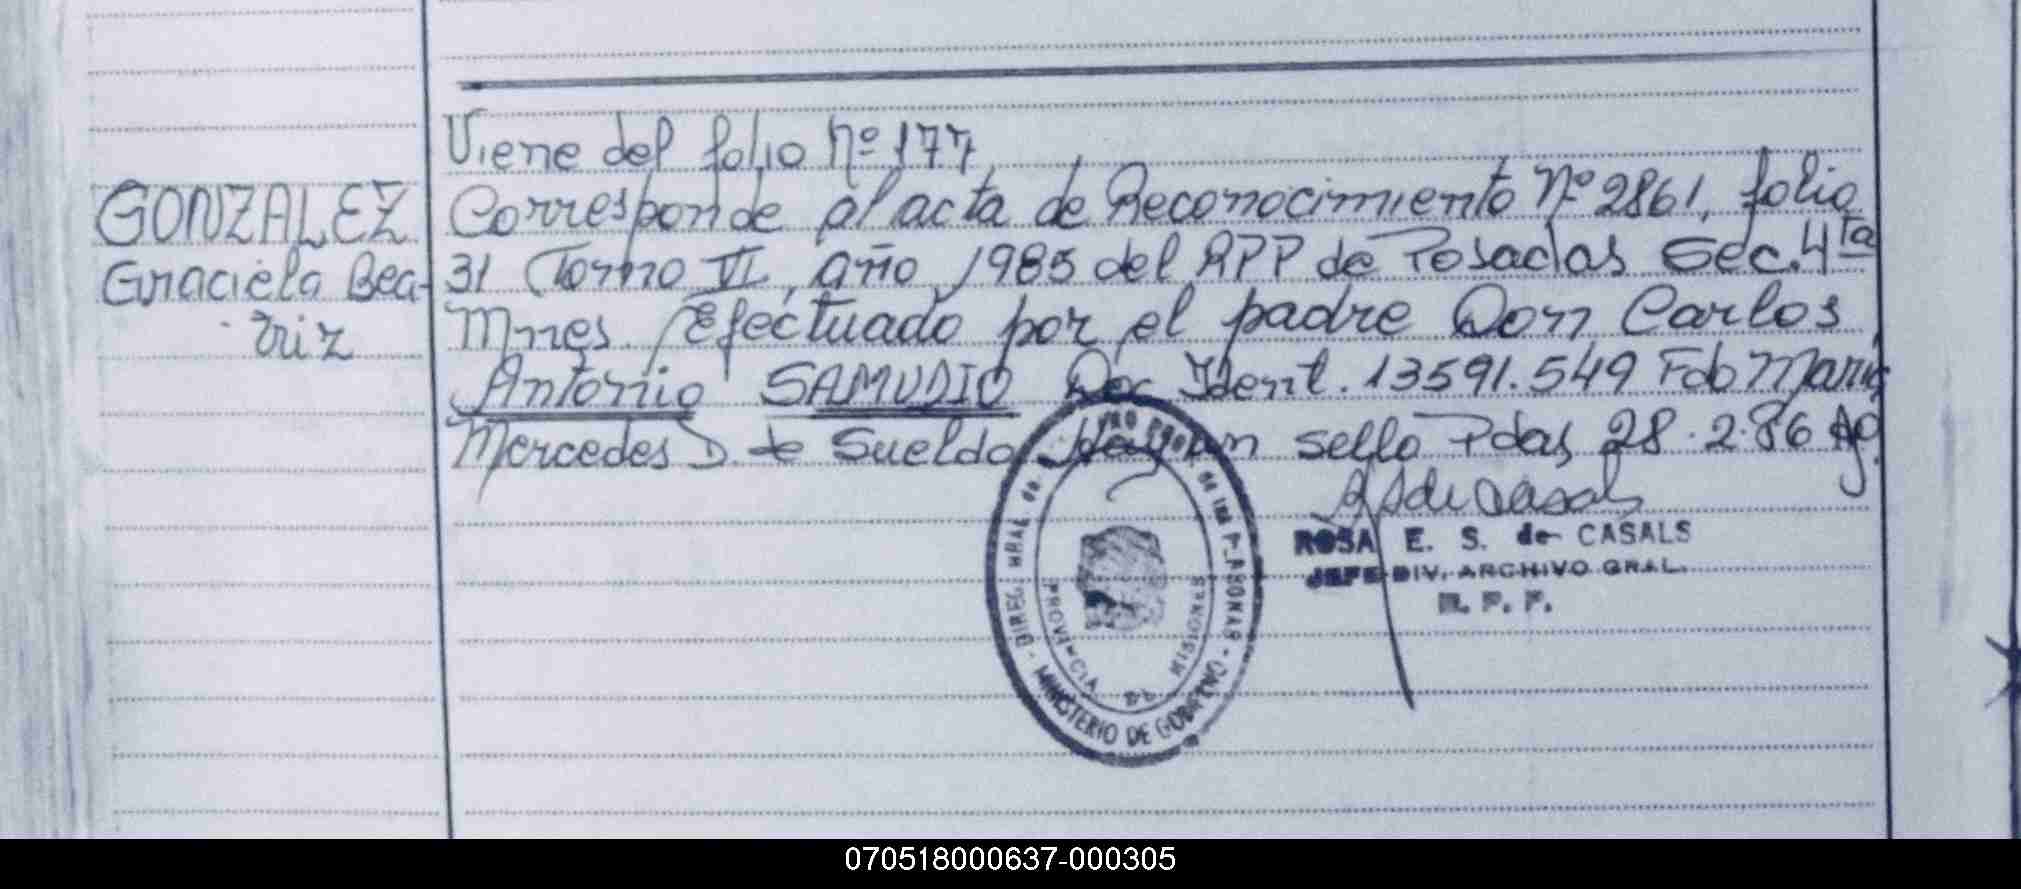 Viene del folio Nº 177
GONZALEZ
Graciela Bea-
triz
Corresponde al acta de Reconocimiento Nº 2861, folio
31 Tomo VI, año 1985 del RPP de Posadas Sec. 4ta
Mnes. Efectuado por el padre Don Carlos
Antonio SAMUDIO Doc Ident. 13591.549 Fdo Maria
Mercedes D. de Sueldo Hay un sello Pdas 28.2.86 Ag.
ROSA E. S. de CASALS
JEFE DIV. ARCHIVO GRAL.
R. P. P.
MINISTERIO DE GOBIERNO
PROVINCIA DE MISIONES
070518000637-000305